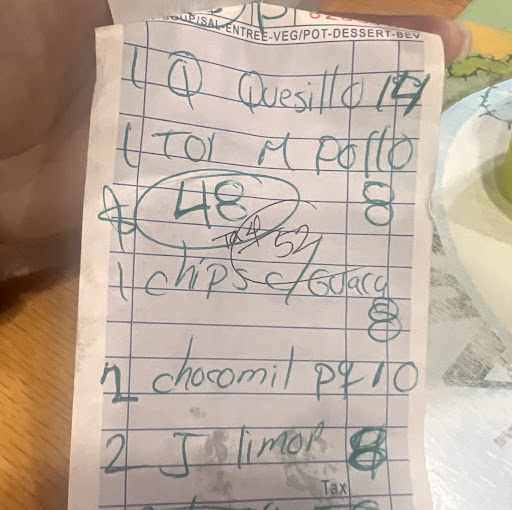 SOUP/SAL-ENTREE-VEG/POT-DESSERT-BEV
1 Q Quesillo 14
1 TOI M POllO
48 8
Tax 4
52
1 chips c/Guaca
8
2 chocomil pq 10
2 J limon 8
Tax